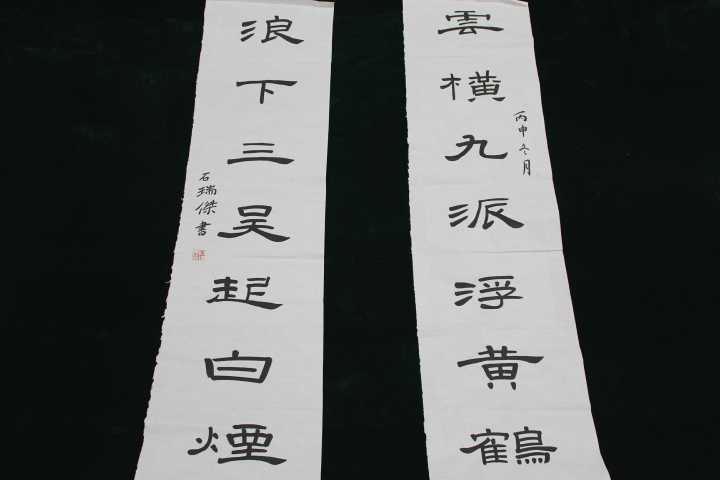 雲橫九派浮黃鶴
丙申冬月
浪下三吴起白煙
石瑞傑書